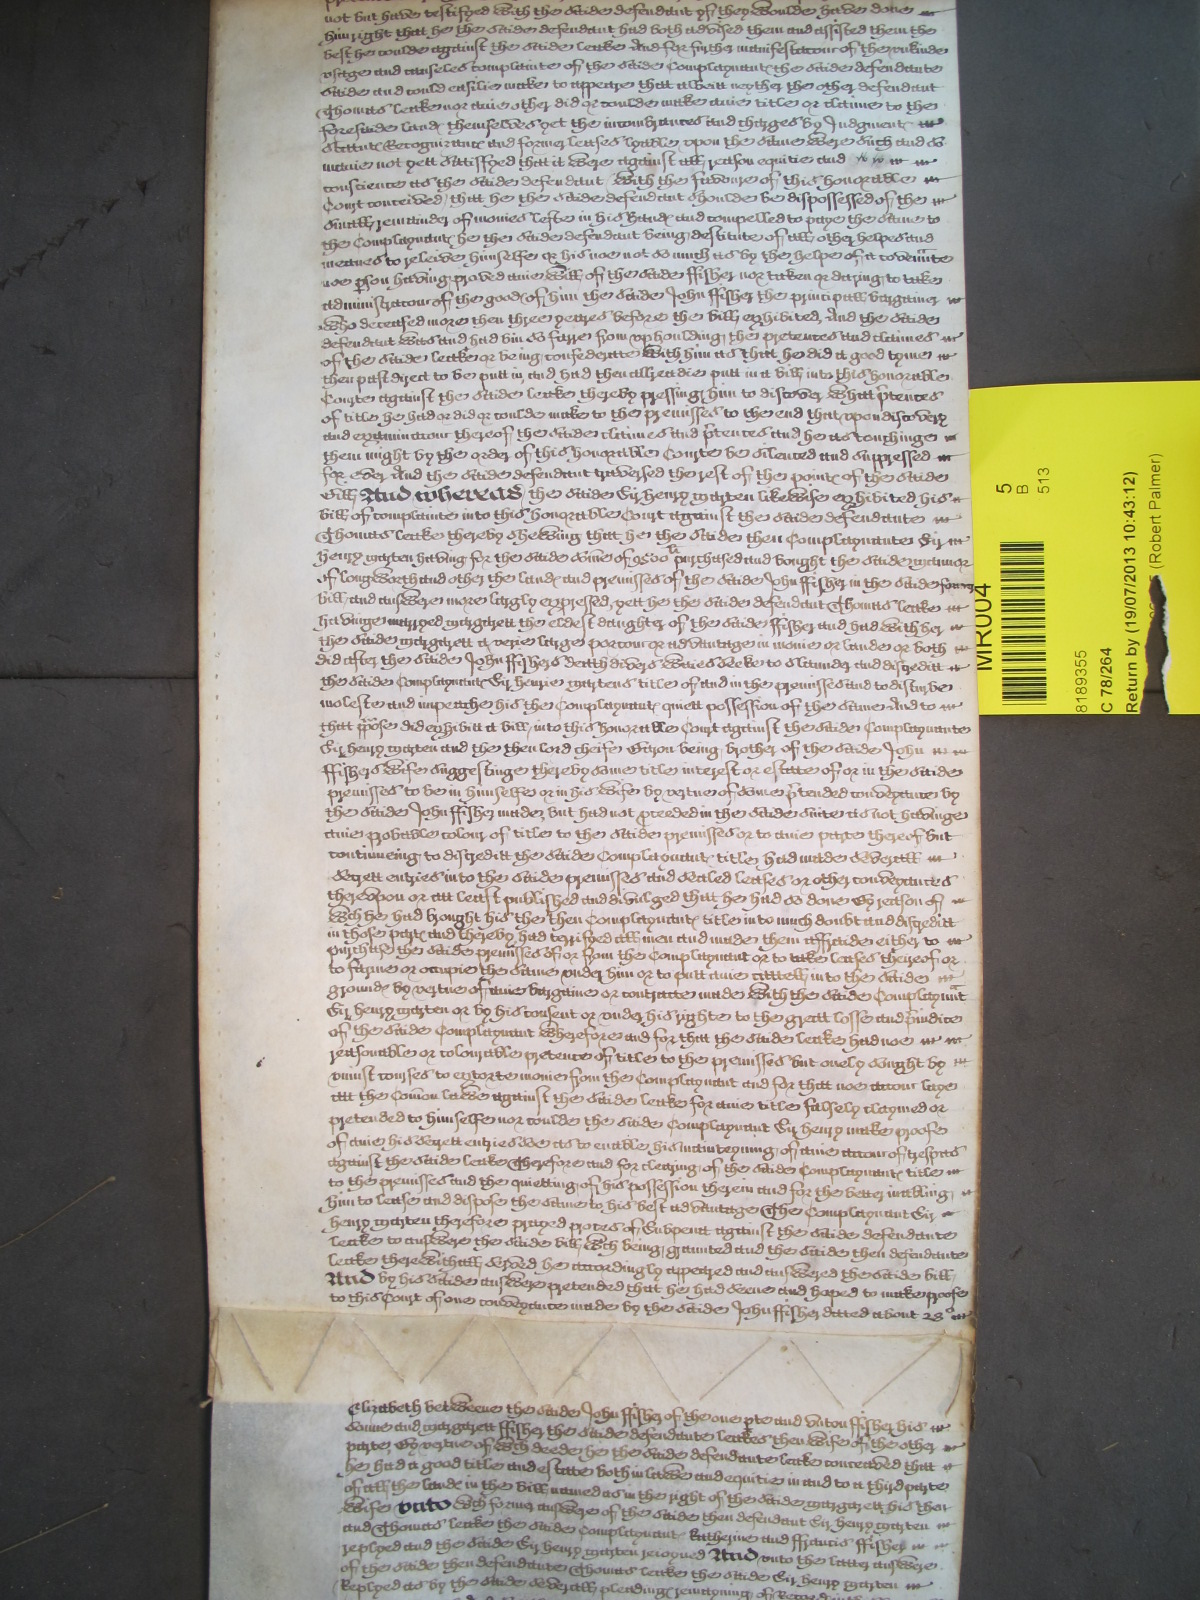 not but have testifyed with the saide defendant yf they woulde have done
him right that he the saide defendant had both advised them and assisted them the
best he coulde against the saide Leake And for further manifestacon of the unkinde
usage and causeles complainte of the saide Complaynant the saide defendante
saide and could easilie make to appeare that albeit neyther the other defendant
Thomas Leake nor anie other did or coulde make anie title or claime to the
foresaide land themselves yet the incombrances and charges by Judgment
statute Recognizance and former leases lyable upon the same were such and so
manie not yett satisfyed that it were against all reason equitie and
conscience as the saide defendant with the favoure of this honorable
Court conceived that he the saide defendant shoulde be dispossessed of the
small remainder of monies lefte in his hande and compelled to paye the same to
the Complaynant he the saide defendant being destitute of all other helpes and
meanes to releive himselfe or his noe not so much as by the helpe of a covennte
noe pson having proved anie will of the saide ffisher nor taken or daring to take
administracon of the good of him the saide John ffisher the principall bargainer
who deceased more then three yeares before the bill exhibited, And the saide
defendant was and had bin so farre from upholding the pretences and claimes
of the saide Leake or being confederate with him as that he did a good tyme
then past direct to be putt in and had then allreadie putt in a bill into this honorable
Courte against the saide Leake thereby pressing him to discover what ptences
of title he had or did or coulde make to the premisses to the end that upon discovery
and examinacon thereof the saide claimes and ptences and he as touchinge
them might by the order of this honorable Courte be silenced and suppressed
for ever And the saide defendant traversed the rest of the pointe of the saide
bill And whereas the saide Sir Henry Marten likewise exhibited his
bill of complainte into this honorable Court against the saide defendante
Thomas Leake thereby shewing that he the saide then Complaynante Sir
Henry Marten having for the saide some of 9500li purchased and bought the saide mannor
of Longworth and other the land and premisses of the saide John ffisher in the saide former
bill and answere more largly expressed, yett he the saide defendant Thomas Leake
havinge marryed Margarett the eldest daughter of the saide ffisher and had with her
the saide Margarett a verie large porcon or advantage in monie or lande or both
did after the saide John ffishers death divers waies seeke to slaunder and discreditt
the saide Complaynant Sir Henrie Martens title of and in the premisses and to disturbe
moleste and impeache his the Complaynant quiett possession of the same And to
that ppose did exhibitt a bill into this honorable Court against the saide Complaynante
Sir Henry Marten and the then lord cheife Baron being brother of the saide John
ffishers wife suggestinge thereby some title interest or estate of or in the saide
premisses to be in himselfe or in his wife by vertue of some ptended conveyance by
the saide John ffisher made, but had not pceeded in the saide suite as not havinge
anie probable colour of title to the saide premisses or to anie parte thereof but
continueing to discreditt the saide Complaynant title had made severall
secrett entries into the saide premisses and sealed leases or other conveyances
thereupon or att least published and divulged that he had so done By reason of
wch he had brought his the then Complaynant title into much doubt and discreditt
in those parte and thereby had terrifyed all men and made them affraide either to
purchase the saide premisses of or from the Complaynant or to take leases thereof or
to farme or occupie the same under him or to putt anie cattell into the saide
grounde by vertue of anie bargaine or contracte made with the saide Complaynnt
Sir Henry Marten or by his consent or under his righte to the great losse and piudice
of the saide Complaynant Wherefore and for that the saide Leake had noe
reasonable or colourable pretence of title to the premisses but onely sought by
uniust courses to extorte monie from the Complaynant and for that noe accon laye
att the Comon lawe against the saide Leake for anie title falsely claymed or
pretended to himselfe nor coulde the saide Complaynant Sir Henry make proofe
of anie his secrett entries soe as to enable his mainteyning of anie accon of trespas
against the saide Leake Therefore and for clearing of the saide Complaynant title
to the premisses and the quietting of his possession therein and for the better inabling
him to lease and dispose the same to his best advantage The Complaynant Sir
Henry Marten therefore prayed proces of Subpena against the saide defendante
Leake to answere the saide bill wch being graunted and the saide then defendante
Leake therewithall served he accordingly appeared and answered the saide bill
And by his saide answere pretended that he had seene and hoped to make proofe
to this Court of one conveyance made by the saide John ffisher dated about 23o
Elizabeth betweene the saide John ffisher of the one pte and Anton ffisher his
sonne and Margarett ffisher the saide defendante Leakes then wife of the other
parte By vertue of wch deede he the saide defendante Leake conceaved that
he had a good title and estate both in lawe and equitie in and to a third parte
of all the lande in the bill named as in the right of the saide Margarett his then
wife unto wch former answere of the saide then defendant Sir Henry Marten
and Thomas Leake the saide Complaynant Katherine and ffrancis ffisher
replyed and the saide Sir Henry Marten reioyned And unto the latter answere
of the saide then defendante Thomas Leake the saide Sir Henry Marten
Replyed as by the saide severall pleading remayning of Record
MR004
5
B
513
8189355
C 78/264
Return by (19/07/2013 10:43:12)
(Robert Palmer)